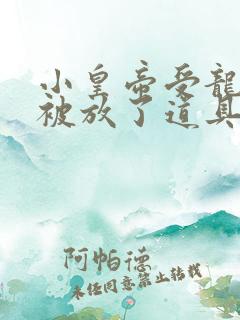 小皇帝受龍
被放了道具
阿帕德
未经同意禁止转载